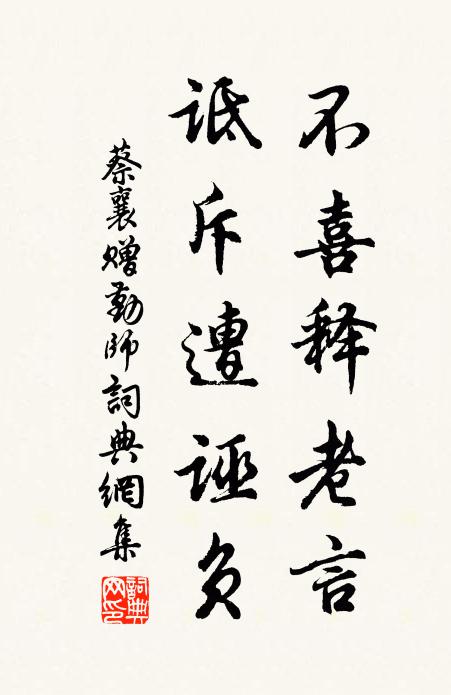 不喜释老言
诋斥遭诬负
蔡襄赠勤師詞典網集
詞典网印